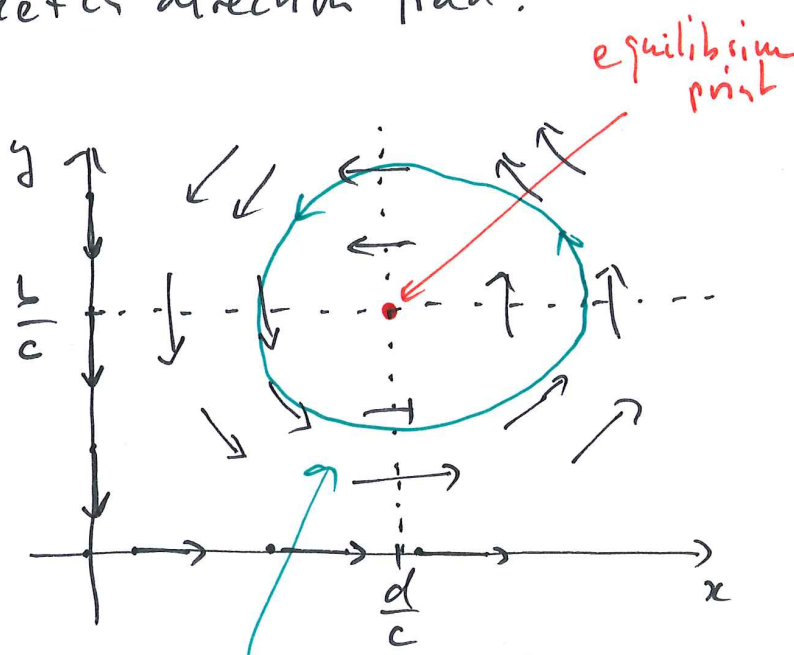 ketch direction field.
equilibrium
point
y
b
c
d
c
x